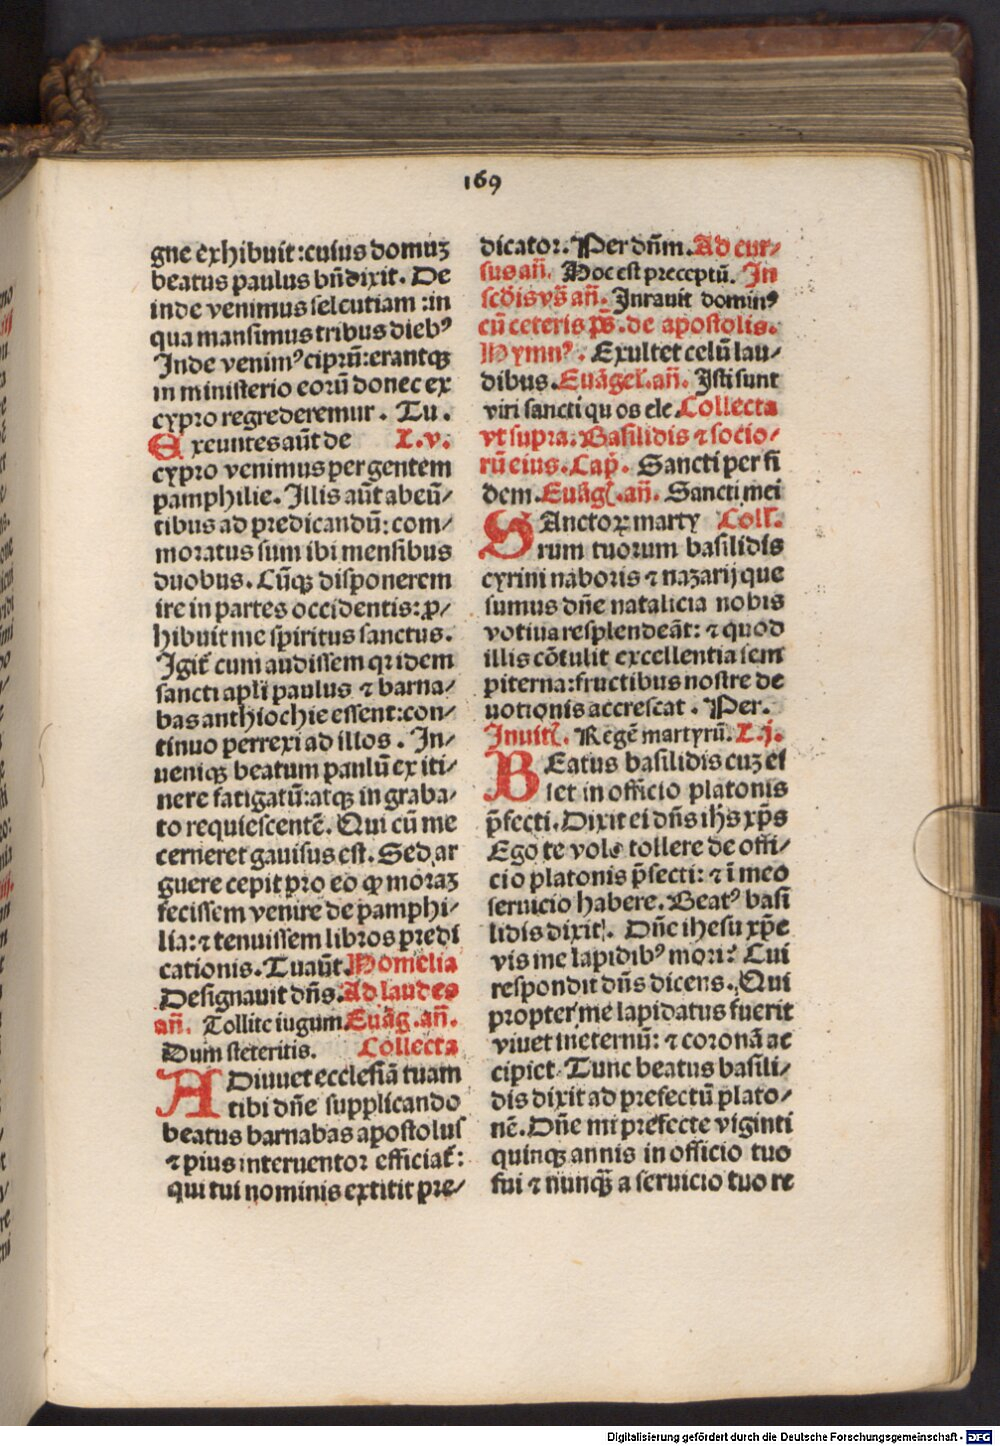 169
gne exhibuit:cuius domuꝫ
beatus paulus bn̄dixit. De
inde venimus seleutiam :in
qua mansimus tribus diebꝰ
Inde venimꝰ ciprū:erantqꝫ
in ministerio eorū donec ex
cypro regrederemur. Tu.
Excuntes aūt de L.v.
cypro venimus per gentem
pamphilie. Illis aūt abeū/
tibus ad predicandū: com/
moratus sum ibi mensibus
duobus. Cūqꝫ disponerem
ire in partes occidentis:ꝓ/
hibuit me spiritus sanctus.
Igit̄ cum audissem qꝛ idem
sancti apl̄i paulus ⁊ barna/
bas anthiochie essent:con/
tinuo perrexi ad illos. In/
ueniqꝫ beatum paulū ex iti/
nere fatigatū:atqꝫ in graba/
to requiescentē. Qui cū me
cerneret gauisus est. Sed ar
guere cepit pro eo ꝙ moraꝫ
fecissem venire de pamphi/
lia:⁊ tenuissem libros predi
cationis. Tu aūt. Homelia
Designauit dn̄s. Ad laudes
an̄. Tollite iugum. Euāg. an̄.
Dum steteritis. Collecta
ADiuuet ecclesiā tuam
tibi dn̄e supplicando
beatus barnabas apostolus
⁊ pius interuentor efficiat̄:
qui tui nominis extitit pre/
dicator. Per dn̄m. Ad cur/
sus an̄. Hoc est preceptū. In
scd̄is vs̄ an̄. Iurauit dominꝰ
cū ceteris ps̄. de apostolis.
Hymnꝰ. Exultet celū lau/
dibus. Euāgel. an̄. Isti sunt
viri sancti quos ele. Collecta
vt supra. Basilidis ⁊ socio/
rū eius. Cap̄. Sancti per fi
dem. Euāgl. an̄. Sancti mei
SAnctoꝝ marty Coll.
rum tuorum basilidis
cyrini naboris ⁊ nazarij que
sumus dn̄e natalicia nobis
votiua resplendeāt: ⁊ quod
illis cōtulit excellentia sem
piterna:fructibus nostre de
uotionis accrescat. Per.
Inuitl. Regē martyrū. L.j.
BEatus basilidis cuꝫ es
set in officio platonis
p̄fecti. Dixit ei dn̄s ih̄s xp̄s
Ego te volo tollere de offi/
cio platonis p̄fecti: ⁊ ī meo
seruicio habere. Beatꝰ basi
lidis dixit. Dn̄e ihesu xp̄e
vis me lapidibꝰ mori? Cui
respondit dn̄s dicens. Qui
propter me lapidatus fuerit
viuet in eternū: ⁊ coronā ac
cipiet. Tunc beatus basili/
dis dixit ad prefectū plato/
nē. Dn̄e mi prefecte viginti
quinqꝫ annis in officio tuo
fui ⁊ nunqꝫ̄ a seruicio tuo re
Digitalisierung gefördert durch die Deutsche Forschungsgemeinschaft - DFG